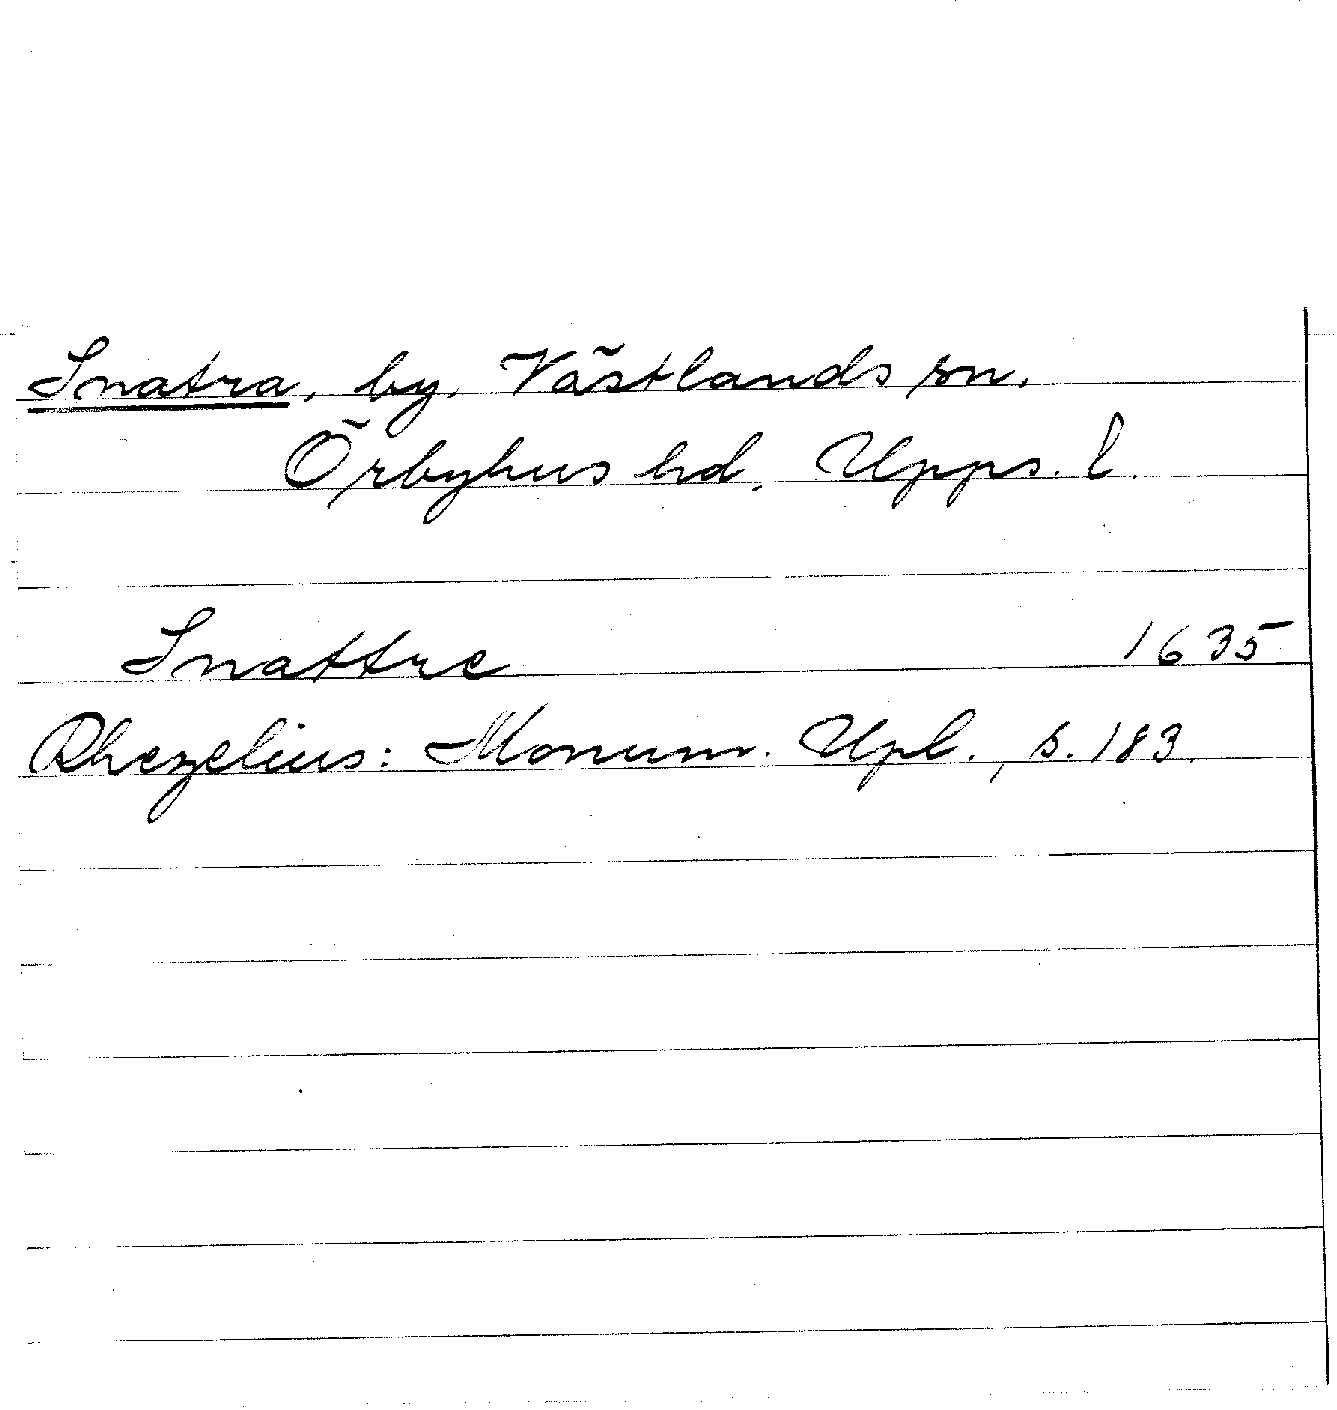 Snatra, by, Västlands sn.
Örbyhus hd, Upps. l.
Snattre 1635
Rhezelius: Monum. Upl., s. 183.